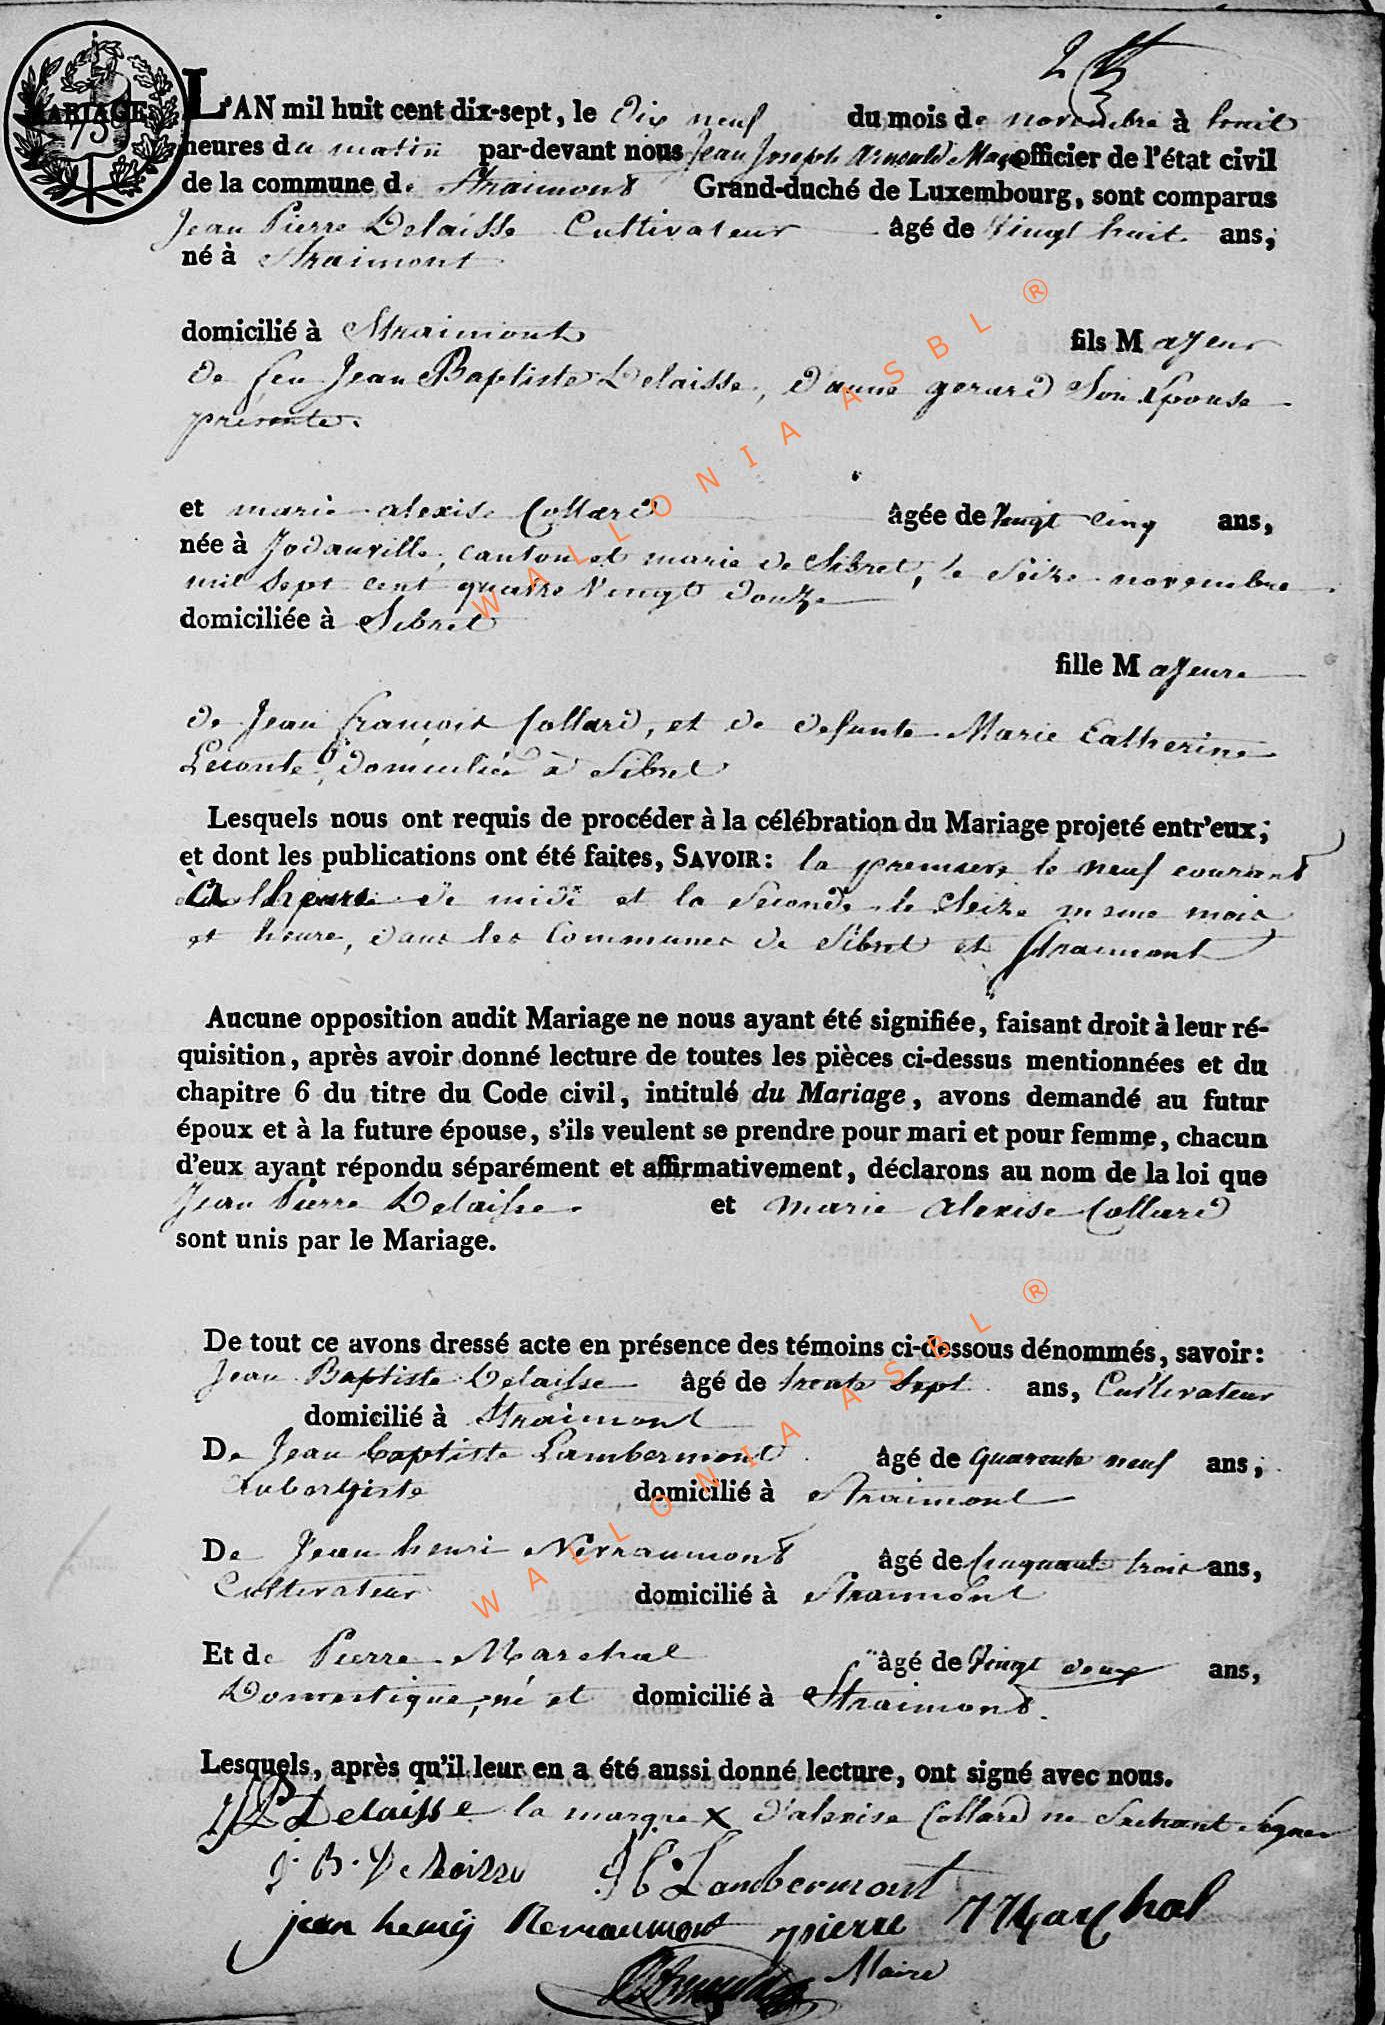 MARIAGE
L'AN mil huit cent dix-sept, le dix neuf du mois de novembre à huit
heures du matin par-devant nous Jean Joseph Arnould Maire, officier de l'état civil
de la commune de Straimont Grand-duché de Luxembourg, sont comparus
Jean Pierre Delaisse Cultivateur âgé de Vingt huit ans,
né à Straimont
domicilié à Straimont fils Majeur
de feu Jean Baptiste Delaisse, d'anne gerard Son Epouse
présente.
et marie alexise Collard âgée de Vingt cinq ans,
née à Jodauville, canton et marie de Sibret, le Seize novembre
mil Sept cent quatre Vingt douze
domiciliée à Sibret
fille Majeure
de Jean françois Collard, et de defunte Marie Catherine
Leconte, Domiciliée à Sibret
Lesquels nous ont requis de procéder à la célébration du Mariage projeté entr'eux;
et dont les publications ont été faites, SAVOIR: la premiere le neuf courant
à l'heure de midi et la Seconde le Seize meme mois
et heure, dans les Communes de Sibret et Straimont
Aucune opposition audit Mariage ne nous ayant été signifiée, faisant droit à leur ré-
quisition, après avoir donné lecture de toutes les pièces ci-dessus mentionnées et du
chapitre 6 du titre du Code civil, intitulé du Mariage, avons demandé au futur
époux et à la future épouse, s'ils veulent se prendre pour mari et pour femme, chacun
d'eux ayant répondu séparément et affirmativement, déclarons au nom de la loi que
Jean Pierre Delaisse. et marie alexise Collard
sont unis par le Mariage.
De tout ce avons dressé acte en présence des témoins ci-dessous dénommés, savoir:
Jean Baptiste Delaisse âgé de trente Sept ans, Cultivateur
domicilié à Straimont
De Jean baptiste Lambermont âgé de quarente neuf ans,
Aubergiste domicilié à Straimont
De Jean henri Nevraumont âgé de Cinquante trois ans,
Cultivateur domicilié à Straimont
Et de Pierre Marchal âgé de Vingt deux ans,
Domestique, né et domicilié à Straimont.
Lesquels, après qu'il leur en a été aussi donné lecture, ont signé avec nous.
JP Delaisse la marque X d'alexise Collard ne Sachant Signer
J. B. Delaisse Lambermont
jean henrij Nevraumont pierre Marchal
Arnould Maire
WALLONIA ASBL ®
WALLONIA ASBL ®